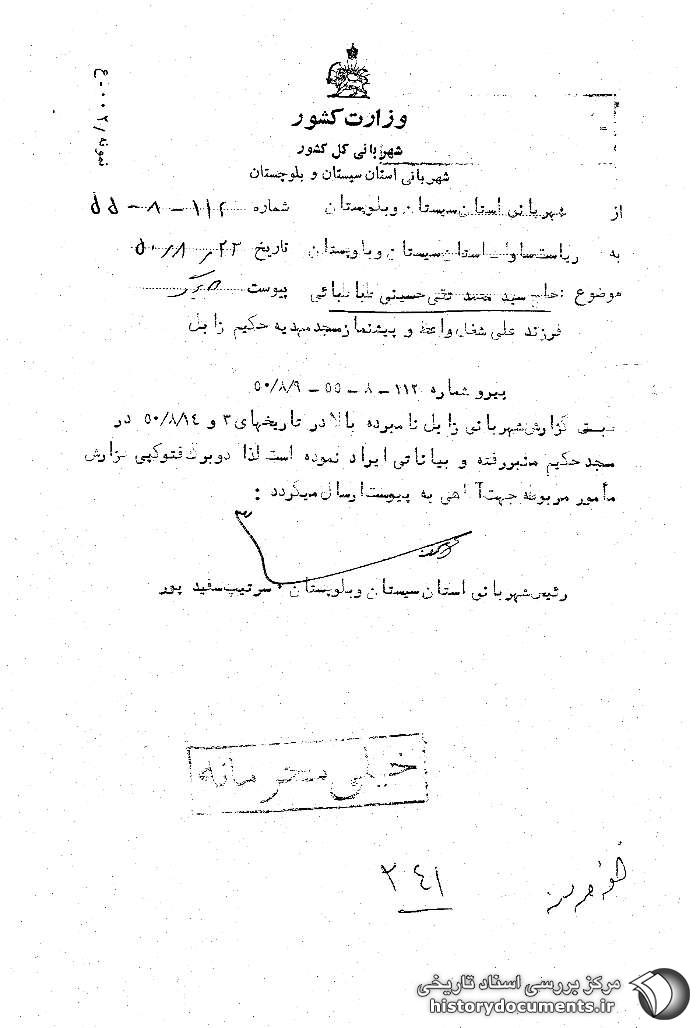 نمونه ۲۰۰/۴-ع
وزارت کشور
شهربانی کل کشور
شهربانی استان سیستان و بلوچستان
از شهربانی استان سیستان و بلوچستان شماره ۱۱۲-۸-۵۵
به ریاست ساواک استان سیستان و بلوچستان تاریخ ۵۰/۸/۲۳
موضوع : حاج سید محمد تقی حسینی طباطبائی پیوست ۲ برگ
فرزند علی شغل واعظ و پیشنماز مسجد مهدیه حکیم زابل
پیرو شماره ۱۱۲-۸-۵۵-۵۰/۸/۹
طبق گزارش شهربانی زابل نامبرده بالا در تاریخهای ۳ و ۵۰/۸/۴ در
مسجد حکیم منبر رفته و بیاناتی ایراد نموده است لذا دوبرگ فتوکپی گزارش
مأمور مربوطه جهت آگاهی به پیوست ارسال میگردد :
رئیس شهربانی استان سیستان و بلوچستان . سرتیپ سفید پور
خیلی محرمانه
۲۴۱
مرکز بررسی اسناد تاریخی
historydocuments.ir